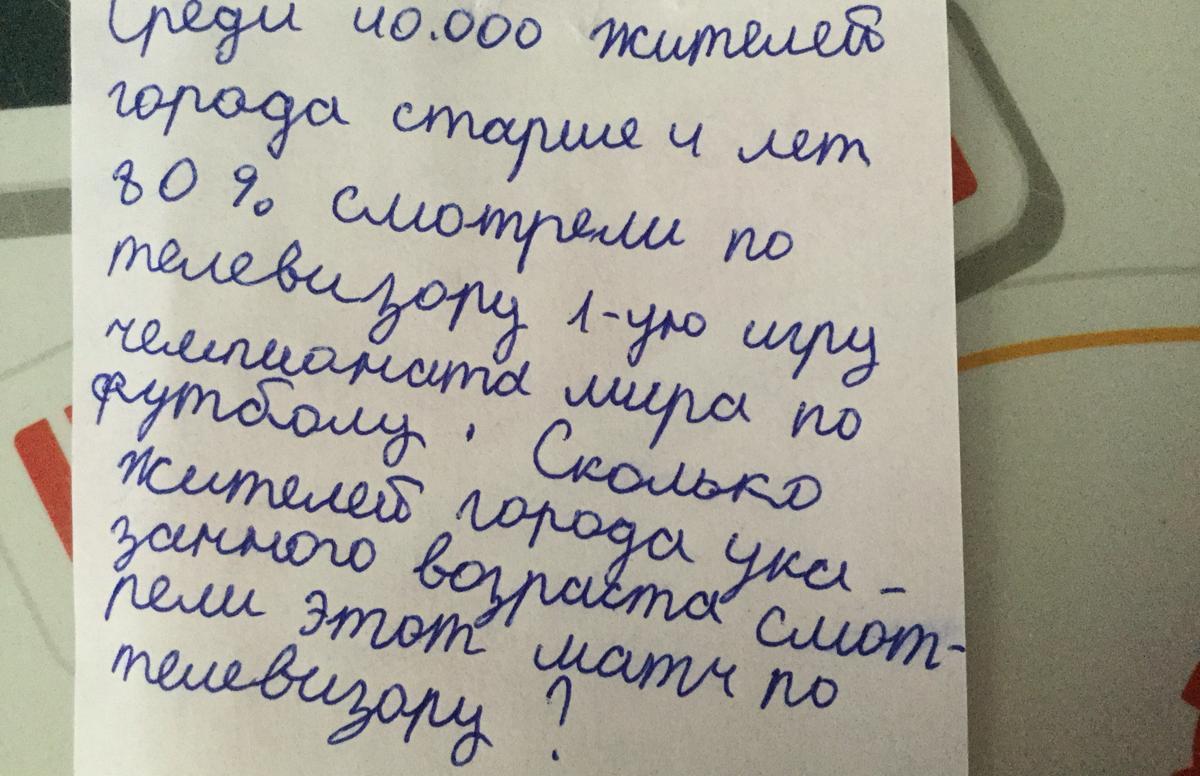 Среди 40.000 жителей
города старше 4 лет
80 % смотрели по
телевизору 1-ую игру
чемпионата мира по
футболу. Сколько
жителей города ука-
занного возраста смот-
рели этот матч по
телевизору?